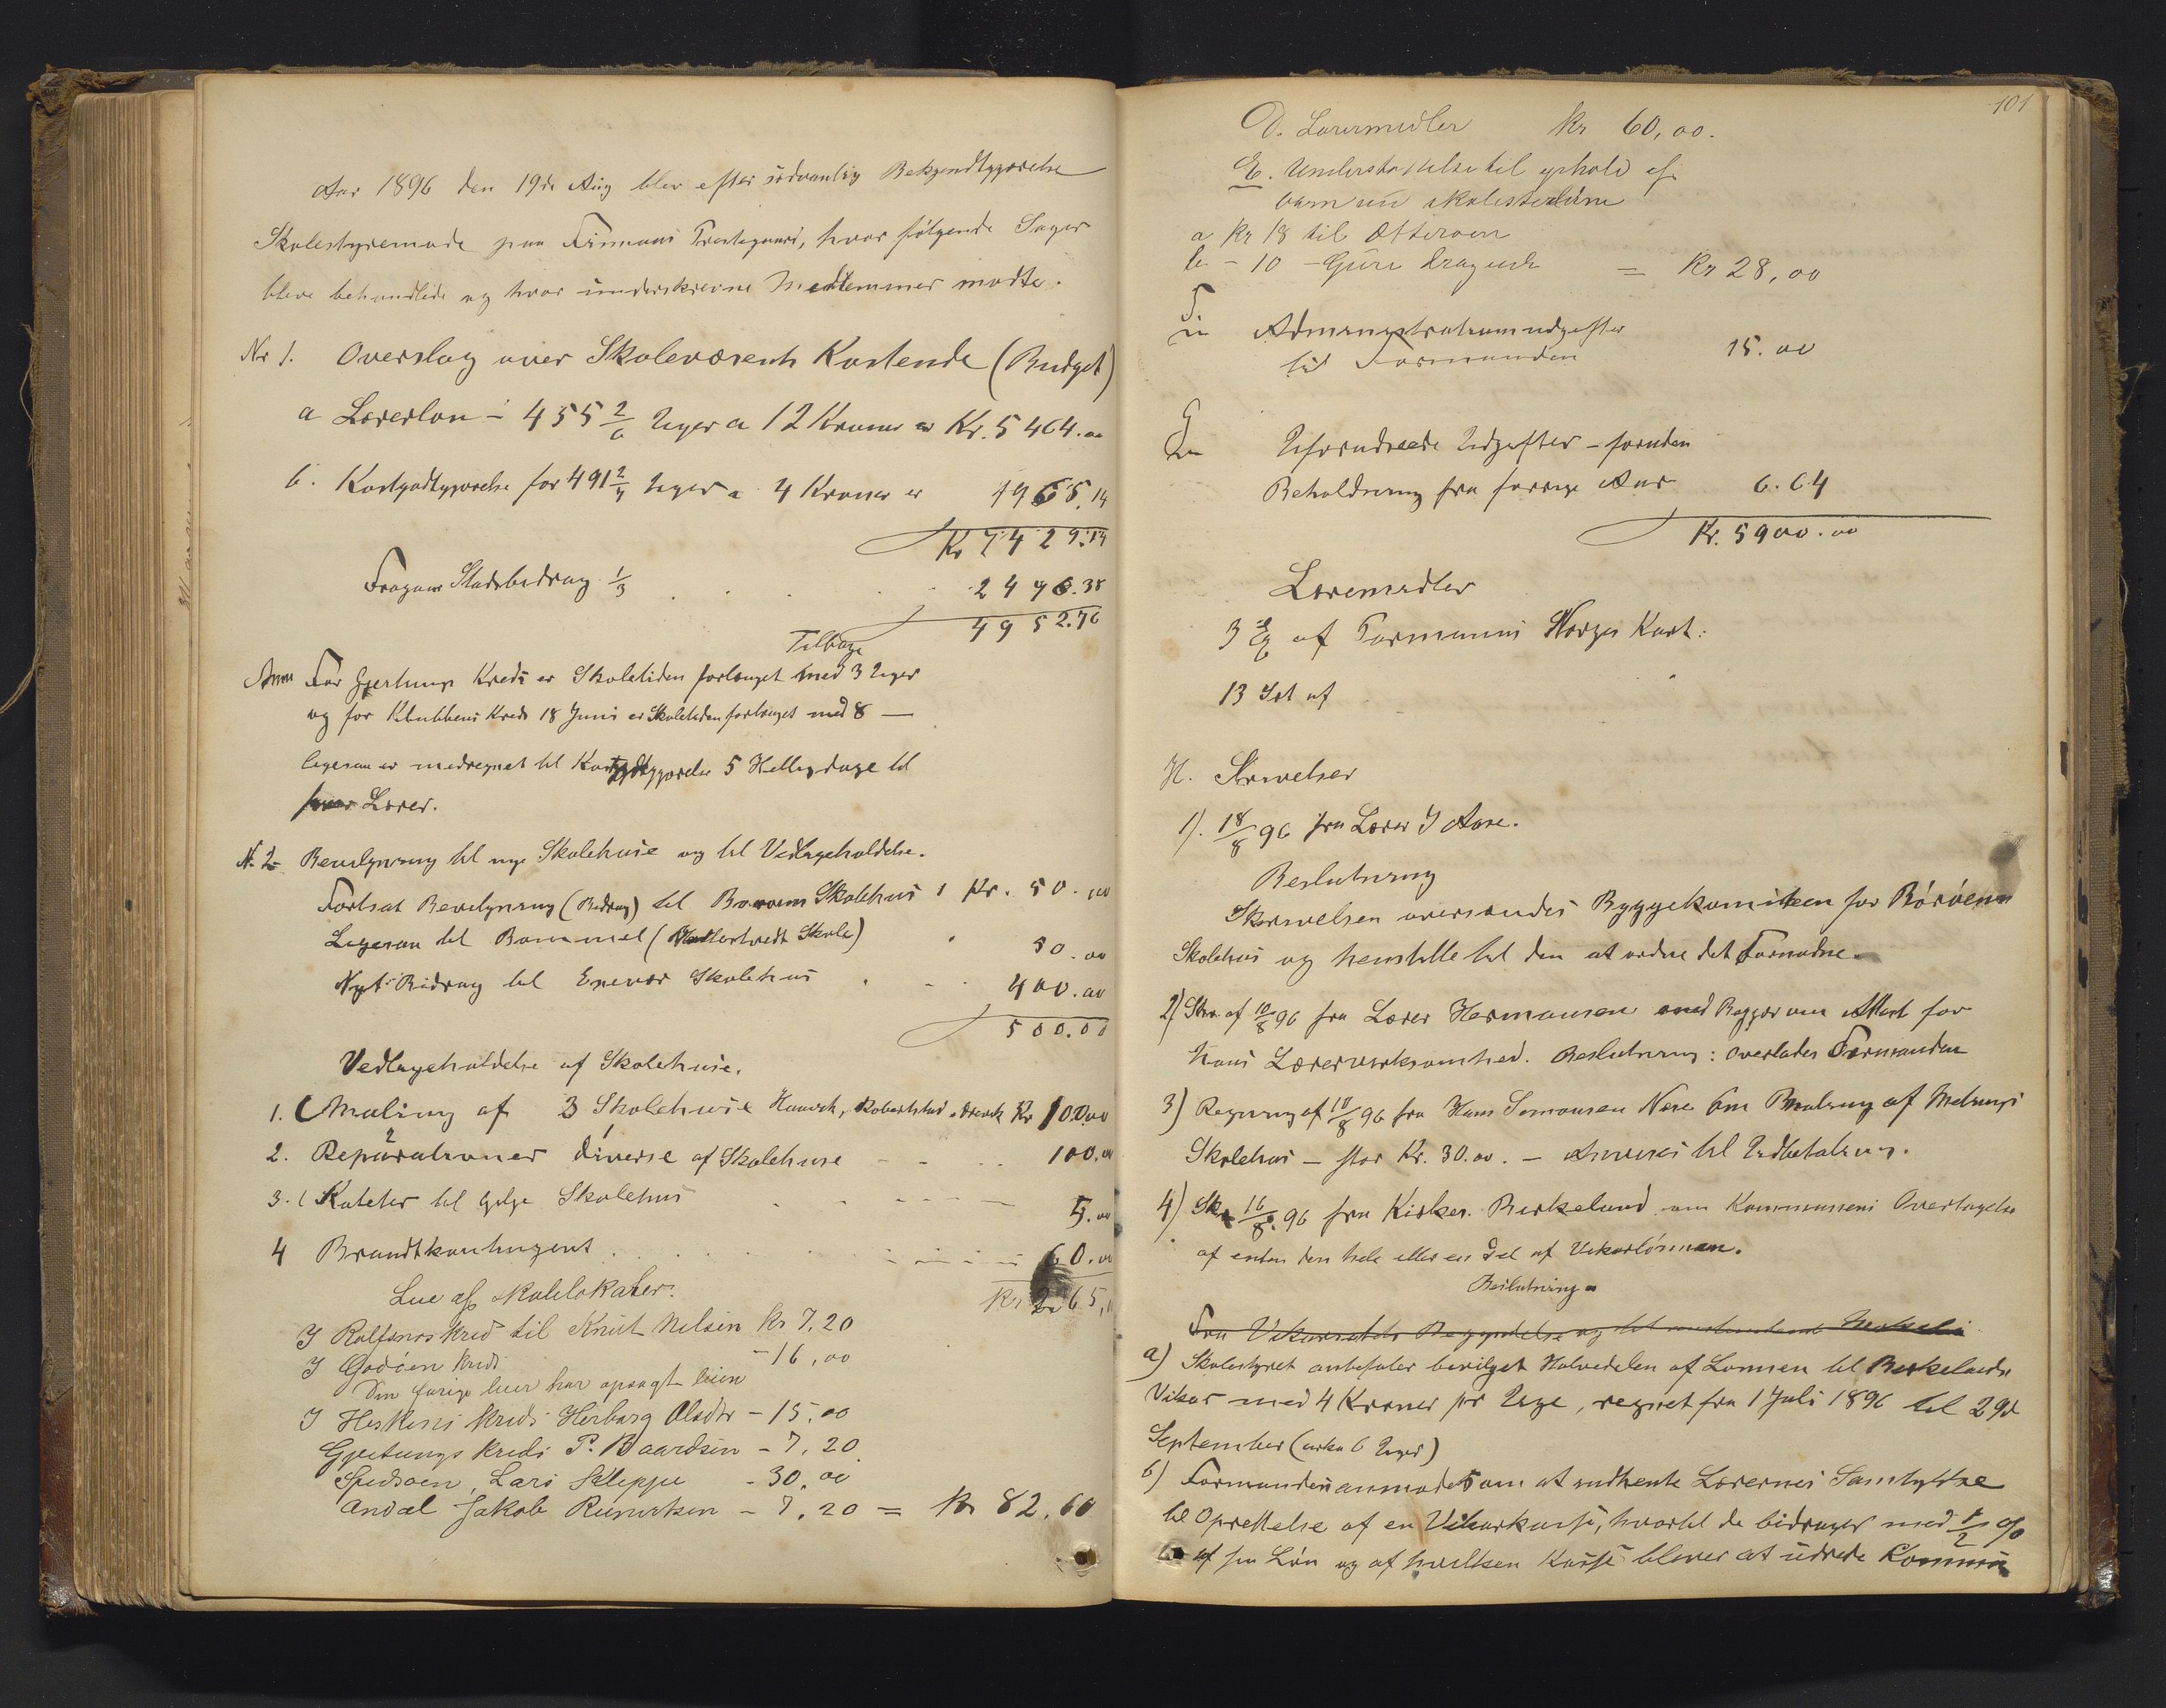 Aar 1896 den 19de Aug blev efter sedvanlig Bekjendtgjørelse
Skolestyremøde paa Finnaas Prestegaard, hvor følgende Sager
bleve behandlede og hvor underskrevne Medlemmer mødte.
Nr 1. Overslag over Skolevæsenets Kostende (Budget)
a Lærerløn - 455 2/6 Uger a 12 Kroner er Kr. 5464.00
b. Kostgodtgjørelse for 491 2/7 Uger a 4 Kroner er 1965.14
Kr 7429.14
Fragaar Stadsbidrag 1/3 . . . . 2476.38
Tilbage 4952.76
Anm For Gjertungs Kreds er Skoletiden forlænget med 3 Uger
og for Klubbens Kreds 18 Juni er Skoletiden forlænget med 8 —
ligesaa er medregnet til Kostgodtgjørelse 5 Helligdage til
hver Lærer.
N. 2. Bevilgning til nye Skolehuse og til Vedligeholdelse.
Fortsat Bevilgning (Bidrag) til Børøens Skolehus 1 Kr. 50.00
Ligesaa til Bømmel ( Skole) 50.00
Nyt Bidrag til Enevær Skolehus . - . 400.00
500.00
Vedligeholdelse af Skolehuse.
1. Maling af 3 Skolehuse Kr 100.00
2. Reparationer diverse af 2 Skolehuse - - . . 100.00
3. 1 Kateter til Skolehus . - - - - 5.00
4 Brandtkontingent . . . . . . 60.00
Leie af skolelokaler. Kr 265,00
I Rolfsnes kred til Knut Nelsen kr 7,20
I Godøen kreds - 16,00
Den forige leier har opsagt leien
I Heskens kreds Herborg Olsdtr - 15,00
Gjeitungs kreds P. Baardsen - 7,20
Spidsøen, Lars Sleppe - 30,00
Andal Jakob - 7,20 = Kr 82,60
101
D. Læremidler Kr 60,00.
E. Understøttelse til ophold af
barn ved skolestederne
a Kr 18 til Otterøen
b - 10 - Guri = Kr 28,00
F Administrationsudgifter
til Formanden 15.00
G Uforudseede Udgifter - foruden
Beholdning fra forrige Aar 6.64
Kr. 5900.00
Læremidler
3 Ex af Normanns Norges Kart:
13 Sæt af
H. Skrivelser
1). 18/8 96 fra Lærer I Aase.
Beslutning
Skrivelsen oversendes Byggekomiteen for Børøens
Skolehus og henstille til den at ordne det Fornødne.
2) Skr. af 10/8 96 fra Lærer Hermansen med Begjær om Attest for
hans Lærervirksomhed. Beslutning: overlades Formanden
3) Regning af 18/8 96 fra Hans Simonsen Nese om Maling af Melings
Skolehus - stor Kr. 30.00. - Anvises til Udbetaling.
4) Skr 16/8. 96 fra Kirkes. Birkeland om Kommunens Overtagelse
af enten den hele eller en Del af Vikarlønnen.
Beslutning
Fra Vikariatets Begyndelse og til
a) Skolestyret anbefaler bevilget Halvedelen af Lønnen til Birkelands
Vikar med 4 Kroner pr Uge, regnet fra 1 Juli 1896 til 29d
September (cirka 6 Uger)
b) Formanden anmodes om at indhente Lærernes Samtykke
til Oprettelse af en Vikarkasse, hvortil de bidrager med 1/2 %
af sin Løn og af hvilken Kasse bliver at udrede Kommu